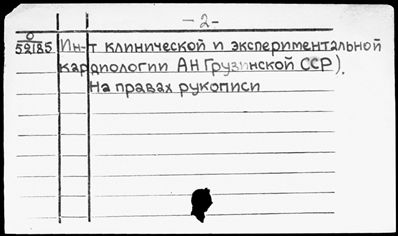 -2-
0
52185 Ин-т клинической и экспериментальной
кардиологии АН Грузинской ССР).
На правах рукописи